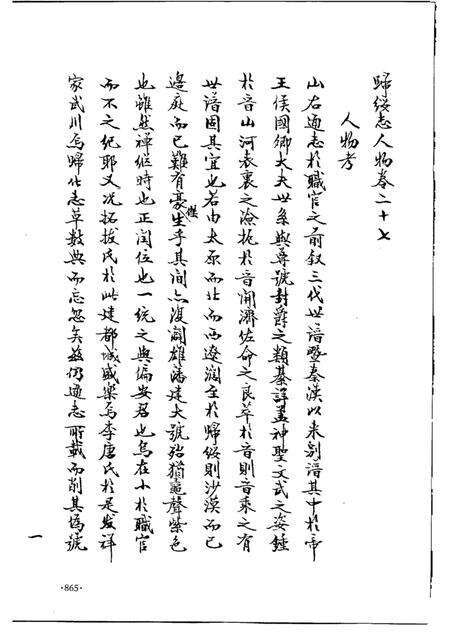 歸綏志人物卷二十七
人物考
山右通志於職官之前叙三代世譜暨秦漢以来别譜其中於帝
王侯國卿大夫世系與尊號封爵之類綦詳蓋神聖文武之姿鍾
於晉山河表裏之險扼於晉開濟佐命之良萃於晉則晉乘之有
世譜固其宜也若由太原而北而西遼濶至於歸綏則沙漠而已
邊庭而已難有豪雄生乎其間亦復阚雄藩建大號殆猶黽聲紫色
也雖然禪继時也正閏位也一统之與偏安君也烏在小於職官
而不之纪耶又况拓拔氏於此建都城盛樂焉李唐氏於是发祥
家武川焉歸化志草数典而忘忽矣兹仍通志所載而削其僞號
一
·865·